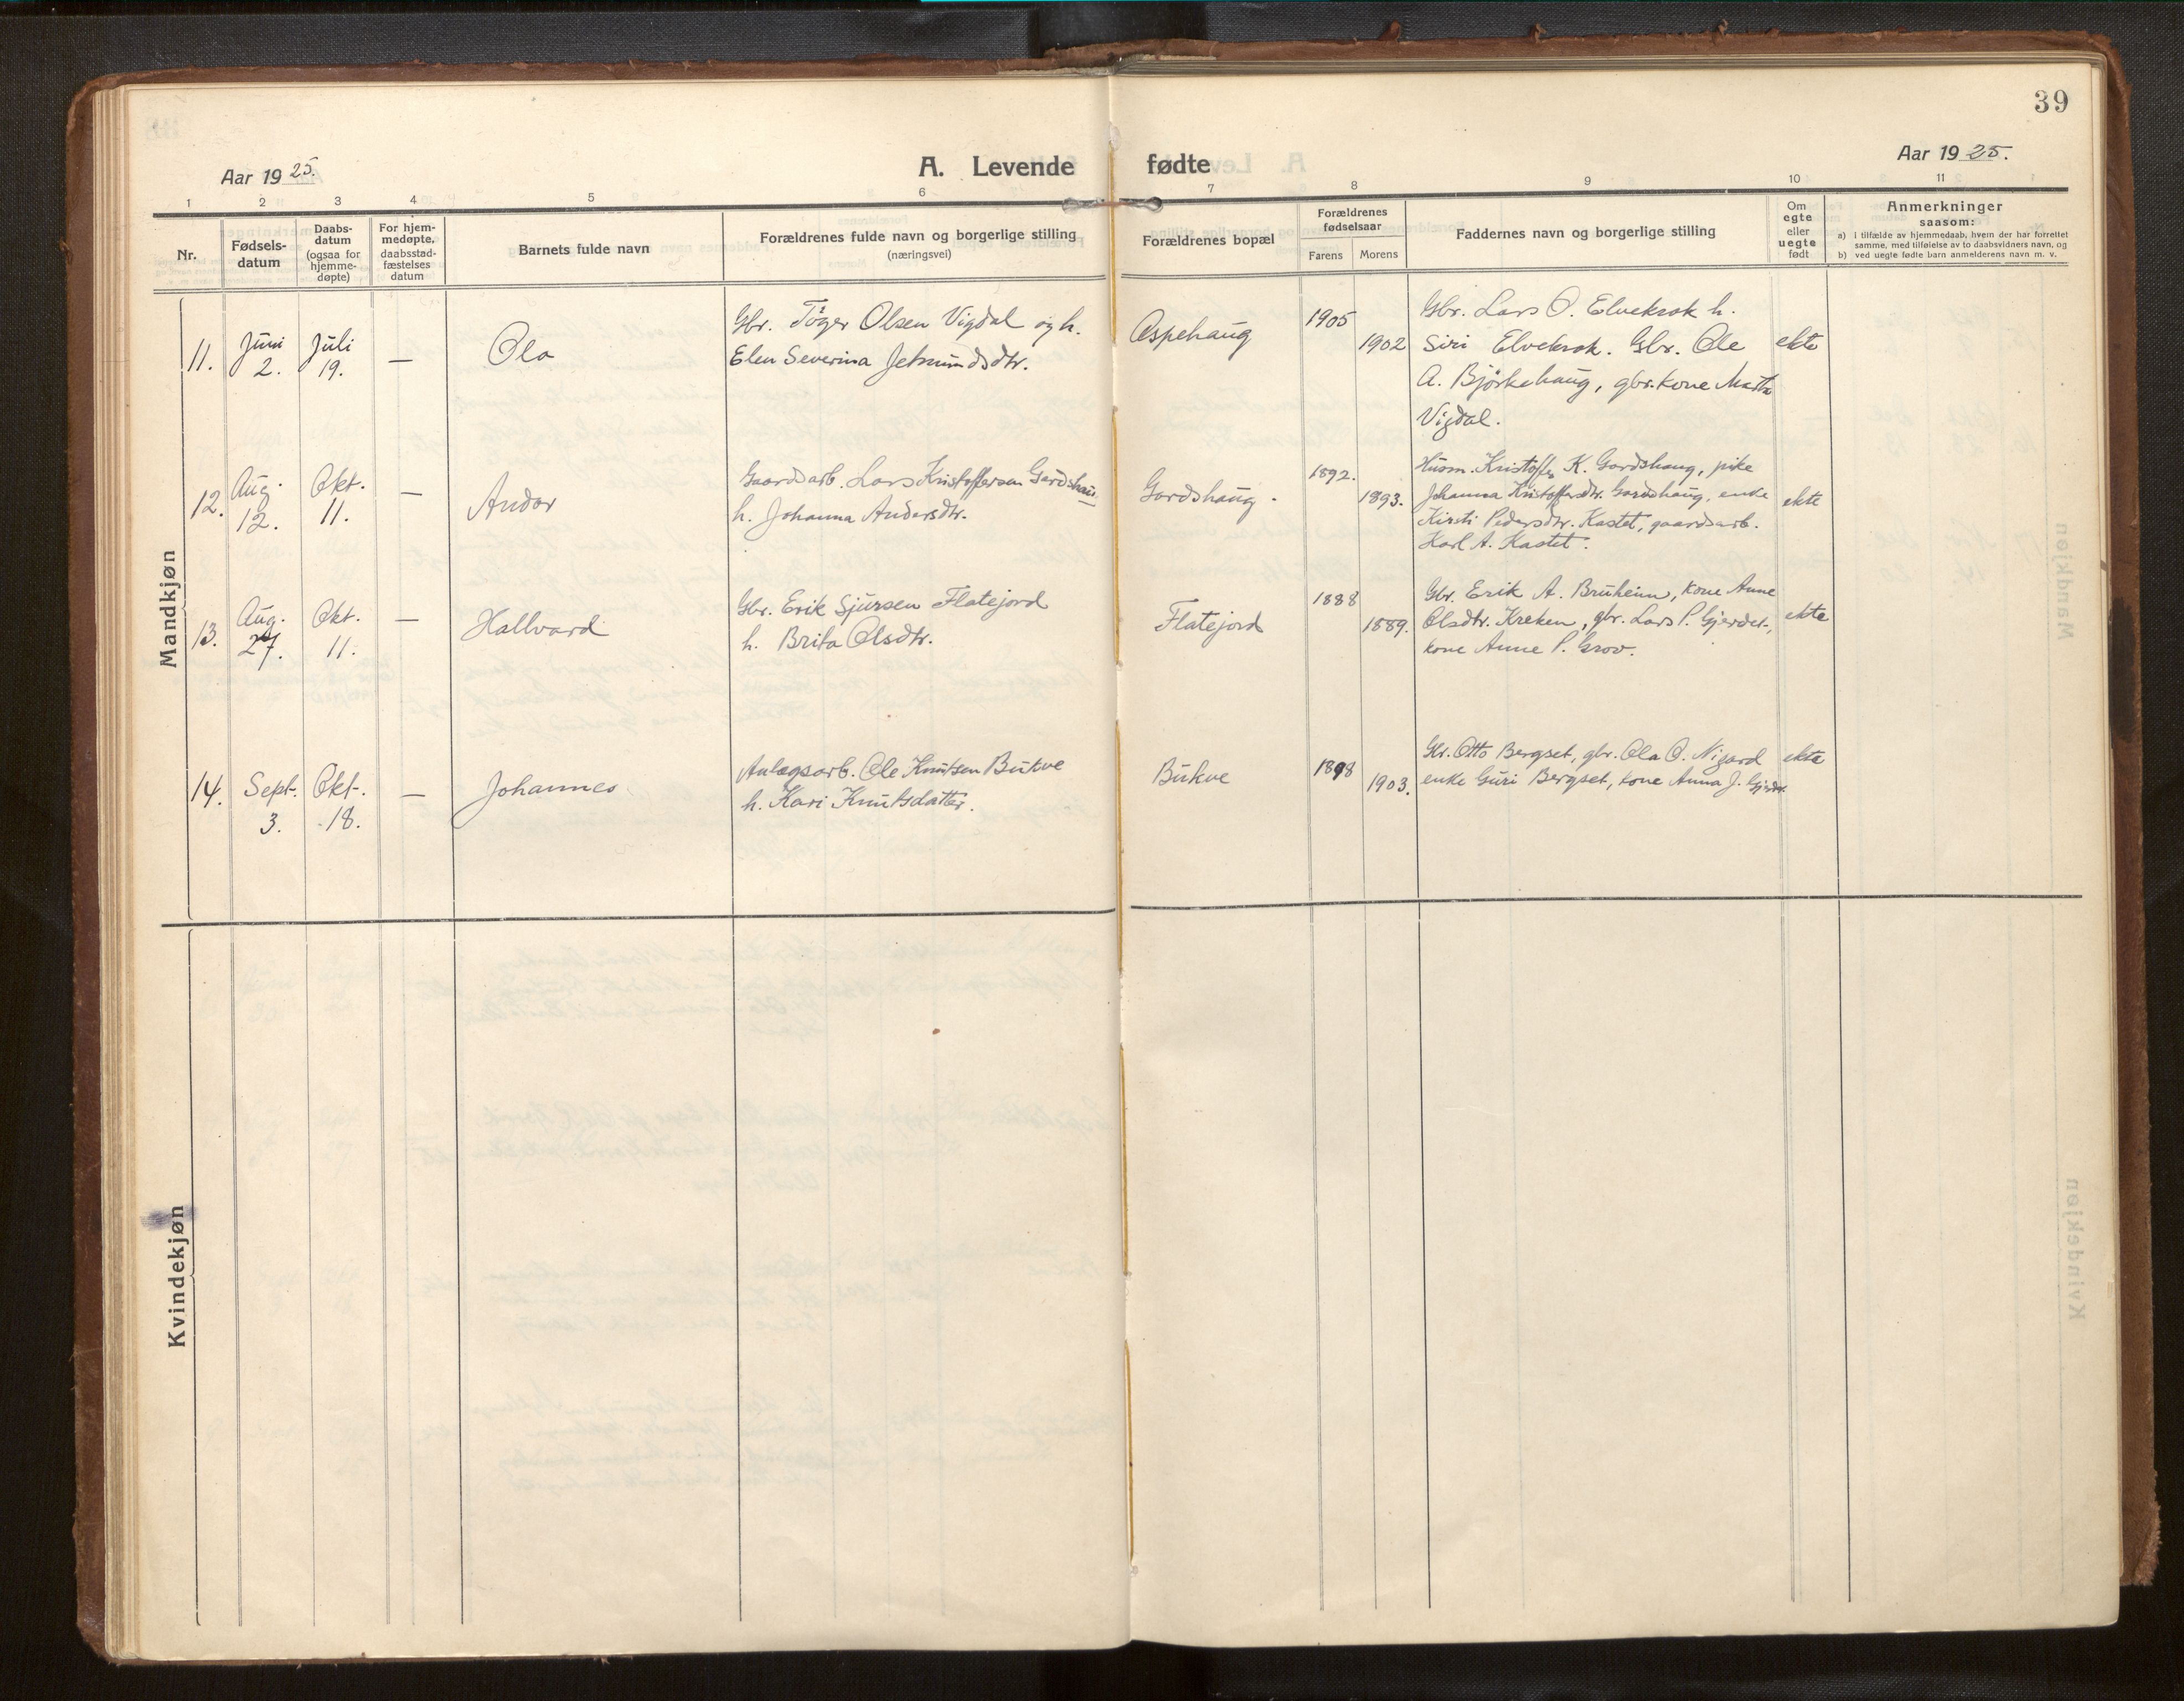 39
Aar 1925.
A. Levende
fødte
Aar 1925.
1 2 3 4 5 6 7 8 9 10 11
Nr.
Fødsels-
datum
Daabs-
datum
(ogsaa for
hjemme-
døpte)
For hjem-
medøpte,
daabsstad-
fæstelses
datum
Barnets fulde navn
Forældrenes fulde navn og borgerlige stilling
(næringsvei)
Forældrenes bopæl
Forældrenes
fødselsaar
Farens Morens
Faddernes navn og borgerlige stilling
Om
egte
eller
uegte
født
Anmerkninger
saasom:
a) i tilfælde av hjemmedaab, hvem der har forrettet
samme, med tilføielse av to daabsvidners navn, og
b) ved uegte fødte barn anmelderens navn m. v.
Mandkjøn
11.
Juni
2.
Juli
19.
—
Ola
Gbr. Tøger Olsen Vigdal og h.
Elen Severina Jetmundsdtr.
Aspehaug
1905
1902
Gbr. Lars O. Elvekrok h.
Siri Elvekrok. Gbr. Ole
A. Bjørkehaug, gbr.kone Marta
Vigdal.
ekte
12.
Aug.
12.
Okt.
11.
—
Andor
Gaardsarb. Lars Kristoffersen Gardshaug
h. Johanna Andersdtr.
Gardshaug.
1892.
1893.
Husm. Kristoffer K. Gardshaug, pike
Johanna Kristoffersdtr. Gardshaug, enke
Kirsti Pedersdtr. Kastet, gaardsarb.
Karl A. Kastet.
ekte
13.
Aug.
27.
Okt.
11.
—
Hallvard
Gbr. Erik Sjursen Flatejord
h. Brita Olsdtr.
Flatejord
1888
1889.
Gbr. Erik A. Bruheim, kone Anne
Olsdtr. Kreken, gbr. Lars P. Gjerdet,
kone Anne P. Grov.
ekte
14.
Sept.
3.
Okt.
18.
—
Johannes
Anlægsarb. Ole Knutsen Bukve
h. Kari Knutsdatter.
Bukve
1898
1903.
Gbr. Otto Bergset, gbr. Ola O. Nigard
enke Guri Bergset, kone Anna J. Gjerdet.
ekte
Kvindekjøn